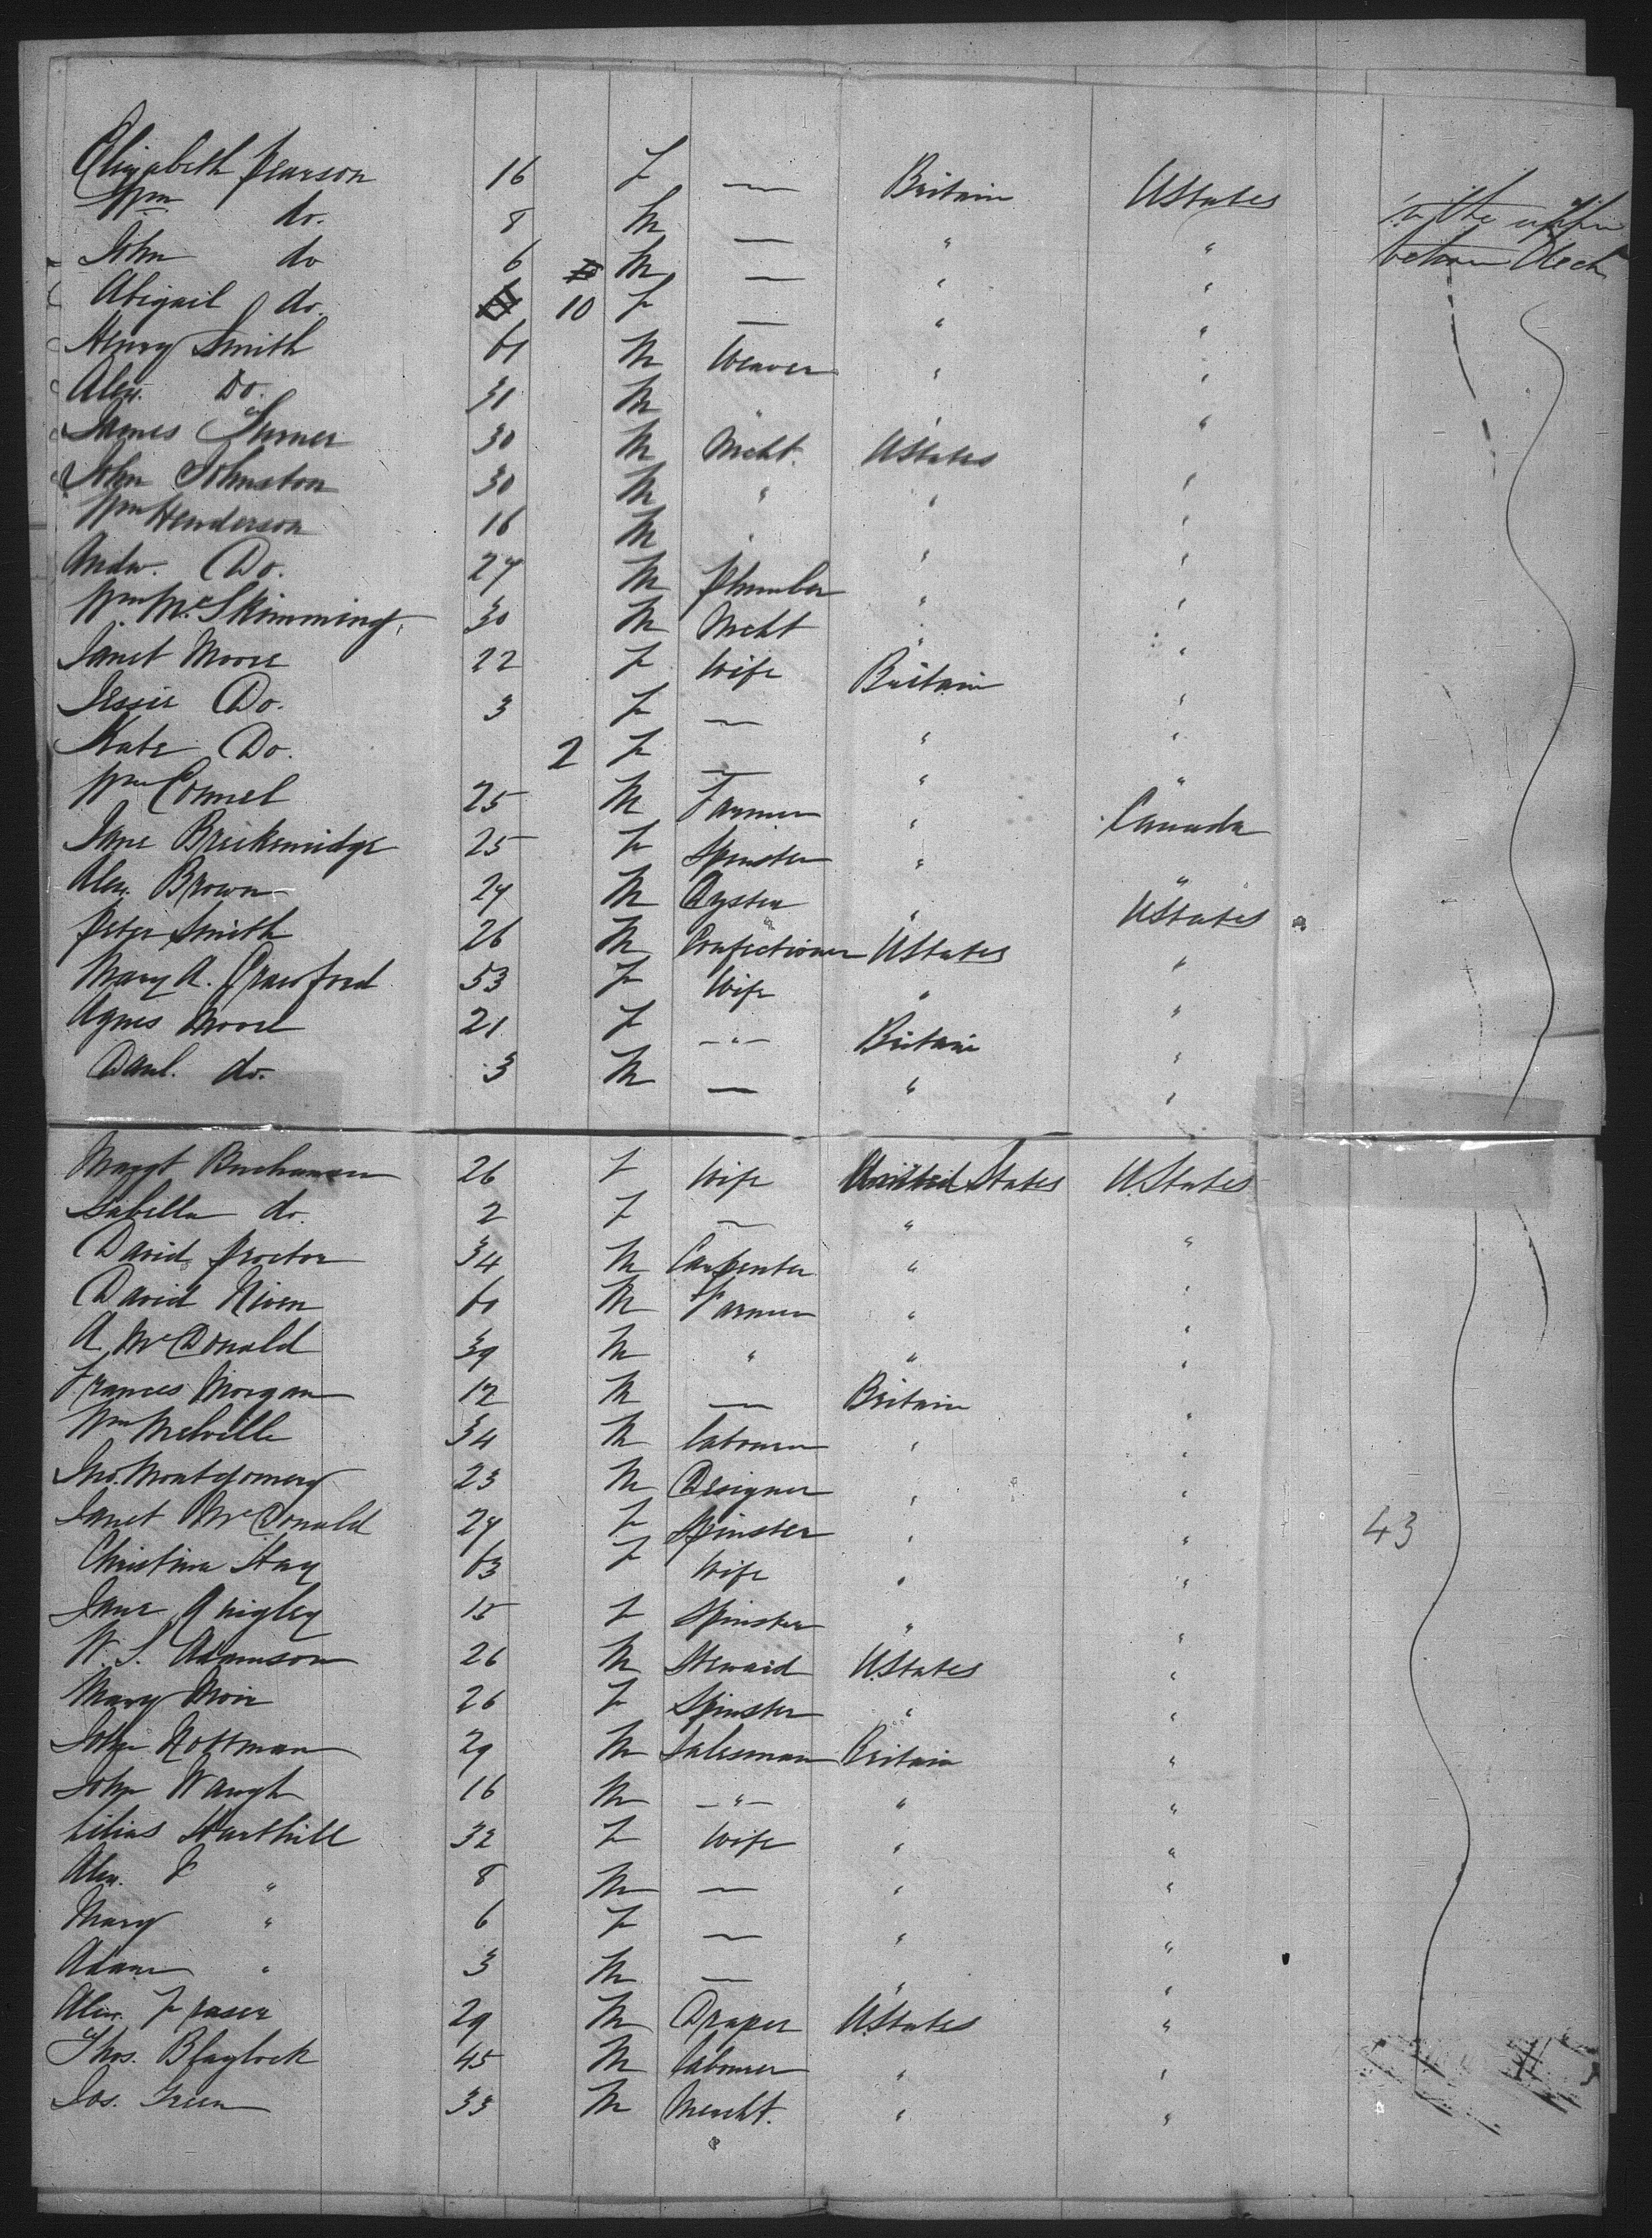 Elizabeth Pearson 16 F — Britain U States in the upper
Wm do. 8 M — " " between Deck
John do 6 M — " "
Abigail do. 10 F — " "
Henry Smith 61 M Weaver " "
Alex. Do. 31 M " " "
James Turner 30 M Mcht. U States "
John Johnston 30 M " " "
Wm Henderson 16 M " " "
Andw. Do. 27 M Plumber " "
Wm McSkimming 30 M Mcht " "
Janet Moore 22 F Wife Britain "
Jessie Do. 3 F — " "
Kate Do. 2 F — " "
Wm Connel 25 M Farmer " Canada
Jane Breckenridge 25 F Spinster " "
Alex. Brown 27 M " U States
Peter Smith 26 M Confectioner U States "
Mary A. Crawford 53 F Wife " "
Agnes Moore 21 F — " — Britain "
Danl. do. 3 M — " "
Margt Buchanan 26 F Wife United States U. States
Isabella do. 2 F — " "
David Proctor 34 M Carpenter " "
David Niven 61 M Farmer " "
A McDonald 39 M " " "
Frances Morgan 12 M — Britain "
Wm Melville 34 M labourer " "
Jno. Montgomery 23 M Designer " "
Janet McDonald 27 F Spinster " " 43
Christina Hay 63 F Wife " "
Jane Quigley 15 F Spinster " "
W. S. Adamson 26 M Steward U. States "
Mary Moir 26 F Spinster " "
John Hottman 29 M Salesman Britain "
John Waugh 16 M — " — " "
Lilias Starthill 32 F Wife " "
Alex. " 8 M — " "
Mary " 6 F — " "
Adam " 3 M — " "
Alex. Fraser 29 M Draper U. States "
Thos. Blaylock 45 M labourer " "
Jos. Green 33 M Mercht. " "